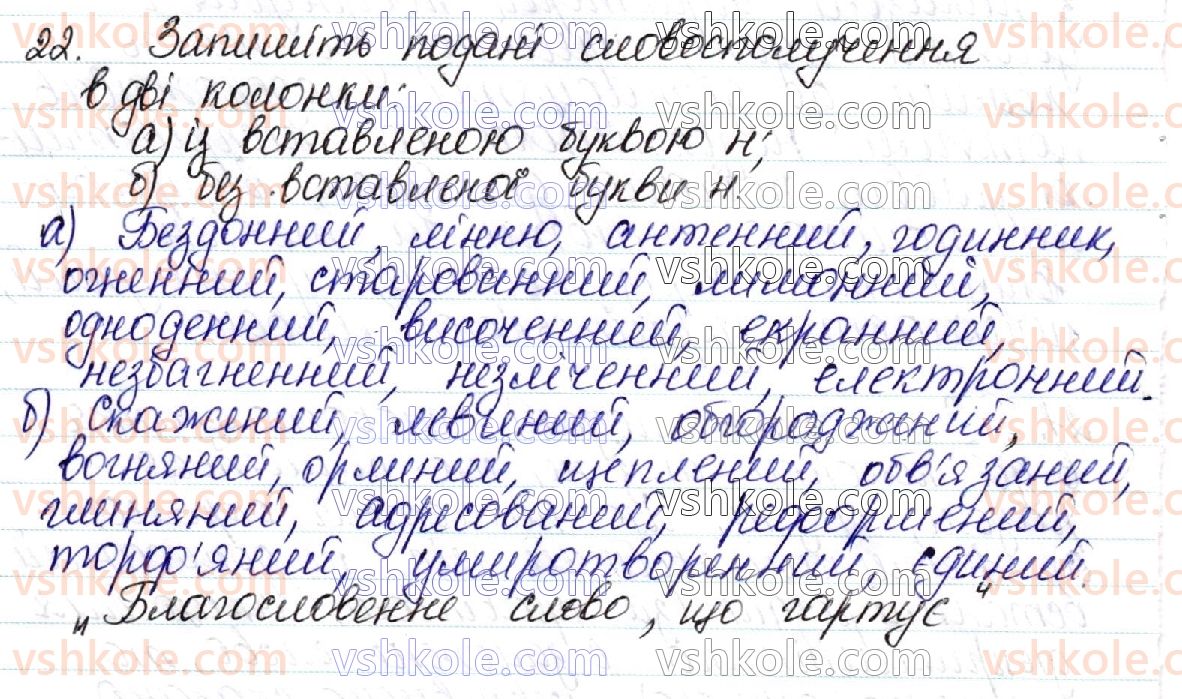 22. Запишіть подані словосполучення
в дві колонки:
а) із вставленою буквою н;
б) без вставленої букви н.
а) Бездонний, лінню, антенний, годинник,
огненний, старовинний, лимонний,
одноденний, височенний, екранний,
незбагненний, незліченний, електронний.
б) скажений, левиний, обгороджений,
вогняний, орлиний, щеплений, обв'язаний,
глиняний, адресований, реформений,
торф'яний, умиротворенний, єдиний.
„Благословенне слово, що гартує"